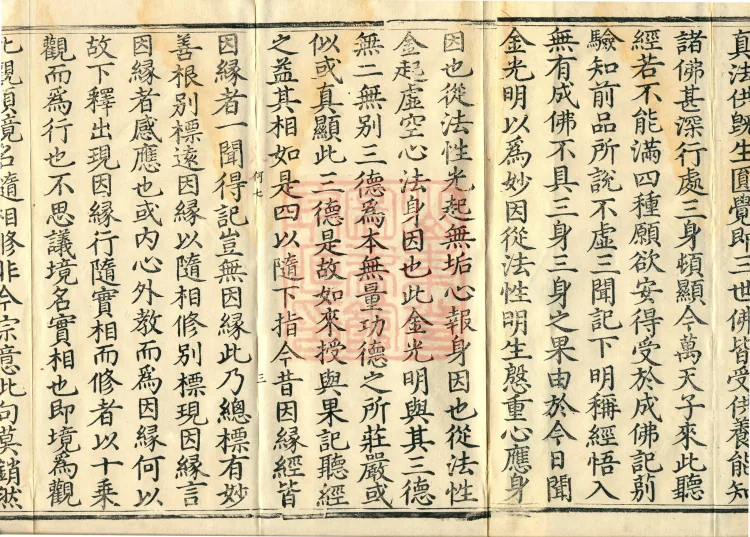 真法供既生圓覺即三世佛皆受供養能知
諸佛甚深行處三身頓顯今萬天子來此聽
經若不能滿四種願欲安得受於成佛記莂
驗知前品所說不虛三聞記下明稱經悟入
無有成佛不具三身三身之果由於今日聞
金光明以爲妙因從法性明生慇重心應身
因也從法性光起無垢心報身因也從法性
金起虛空心法身因也此金光明與其三德
無二無别三德爲本無量功德之所莊嚴或
似或真顯此三德是故如來授與果記聽經
之益其相如是四以隨下指今昔因緣經皆
何七
三
因緣者一聞得記豈無因緣此乃總標有妙
善根别標遠因緣以隨相修别標現因緣言
因緣者感應也或内心外教而爲因緣何以
故下釋出現因緣行隨實相而修者以十乘
觀而爲行也不思議境名實相也即境爲觀
此觀順境名隨相修非今宗意此句莫銷然